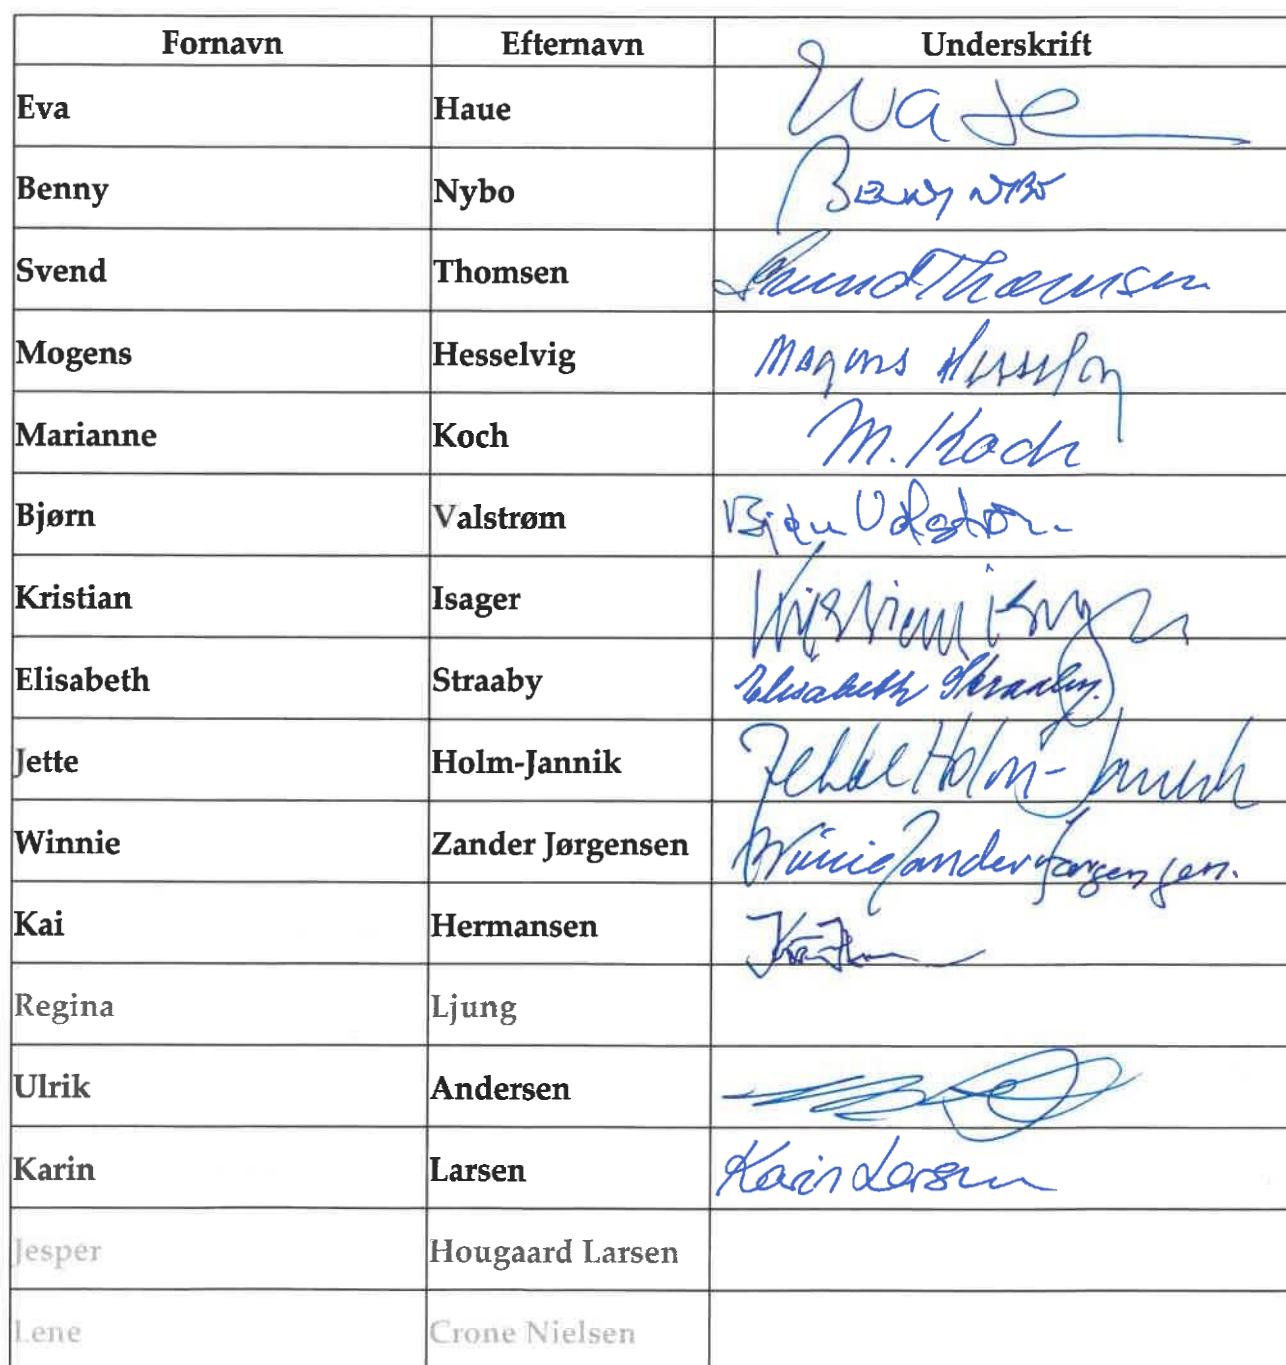 Fornavn Efternavn Underskrift
Eva Haue
Benny Nybo Benny Nybo
Svend Thomsen Svend Thomsen
Mogens Hesselvig Mogens
Marianne Koch M. Koch
Bjørn Valstrøm Bjørn Valstrøm
Kristian Isager Kristian
Elisabeth Straaby Elisabeth Straaby.
Jette Holm-Jannik Jette Holm-Jannik
Winnie Zander Jørgensen Winnie Zander Jørgensen.
Kai Hermansen
Regina Ljung
Ulrik Andersen
Karin Larsen Karin Larsen
Jesper Hougaard Larsen
Lene Crone Nielsen